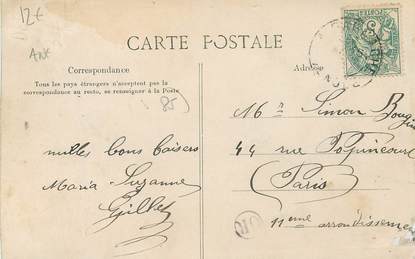 12€
CARTE POSTALE
Correspondance
Tous les pays étrangers n'acceptent pas la
correspondance au recto, se renseigner à la Poste
Adresse
85
milles bons baisers
Maria Suzanne
Gilbet
Mr Simon
44 rue Popincourt
Paris
11eme arrondissement